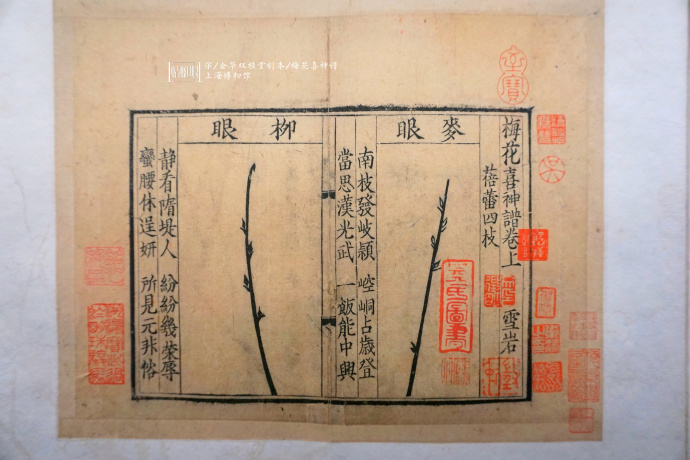 宋/金华双桂堂刻本/梅花喜神谱
上海博物馆
梅花喜神譜卷上 雪岩
蓓蕾四枝
麥眼
南枝發岐頴 崆峒占歲登
當思漢光武 一飯能中興
柳眼
静看隋堤人 紛紛幾榮辱
蠻腰休逞妍 所見元非俗